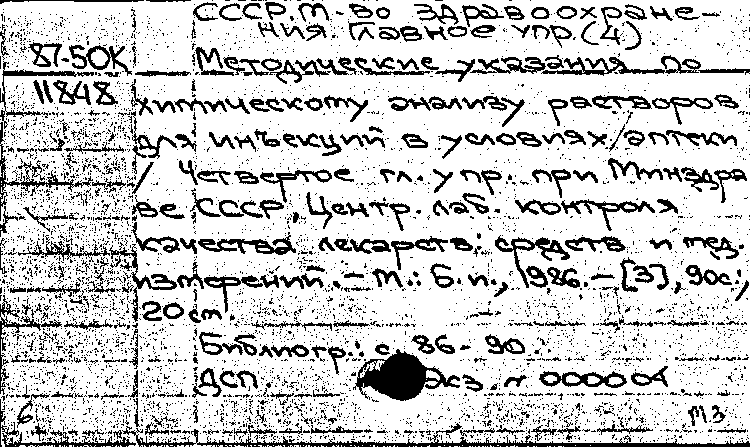 СССР. М-во здравоохране-
ния. Главное упр. (4)
87-50К Методические указания по
11848 химическому анализу растворов
для инъекций в условиях аптеки
/ Четвертое гл. упр. при Минздра
ве СССР, Центр. лаб. контроля
качества лекарств. средств и мед.
измерений. – М.: Б.и., 1986. – [3], 90с.;
20 см.
Библиогр.: с. 86-90.
ДСП. Экз. № 000004
6 МЗ